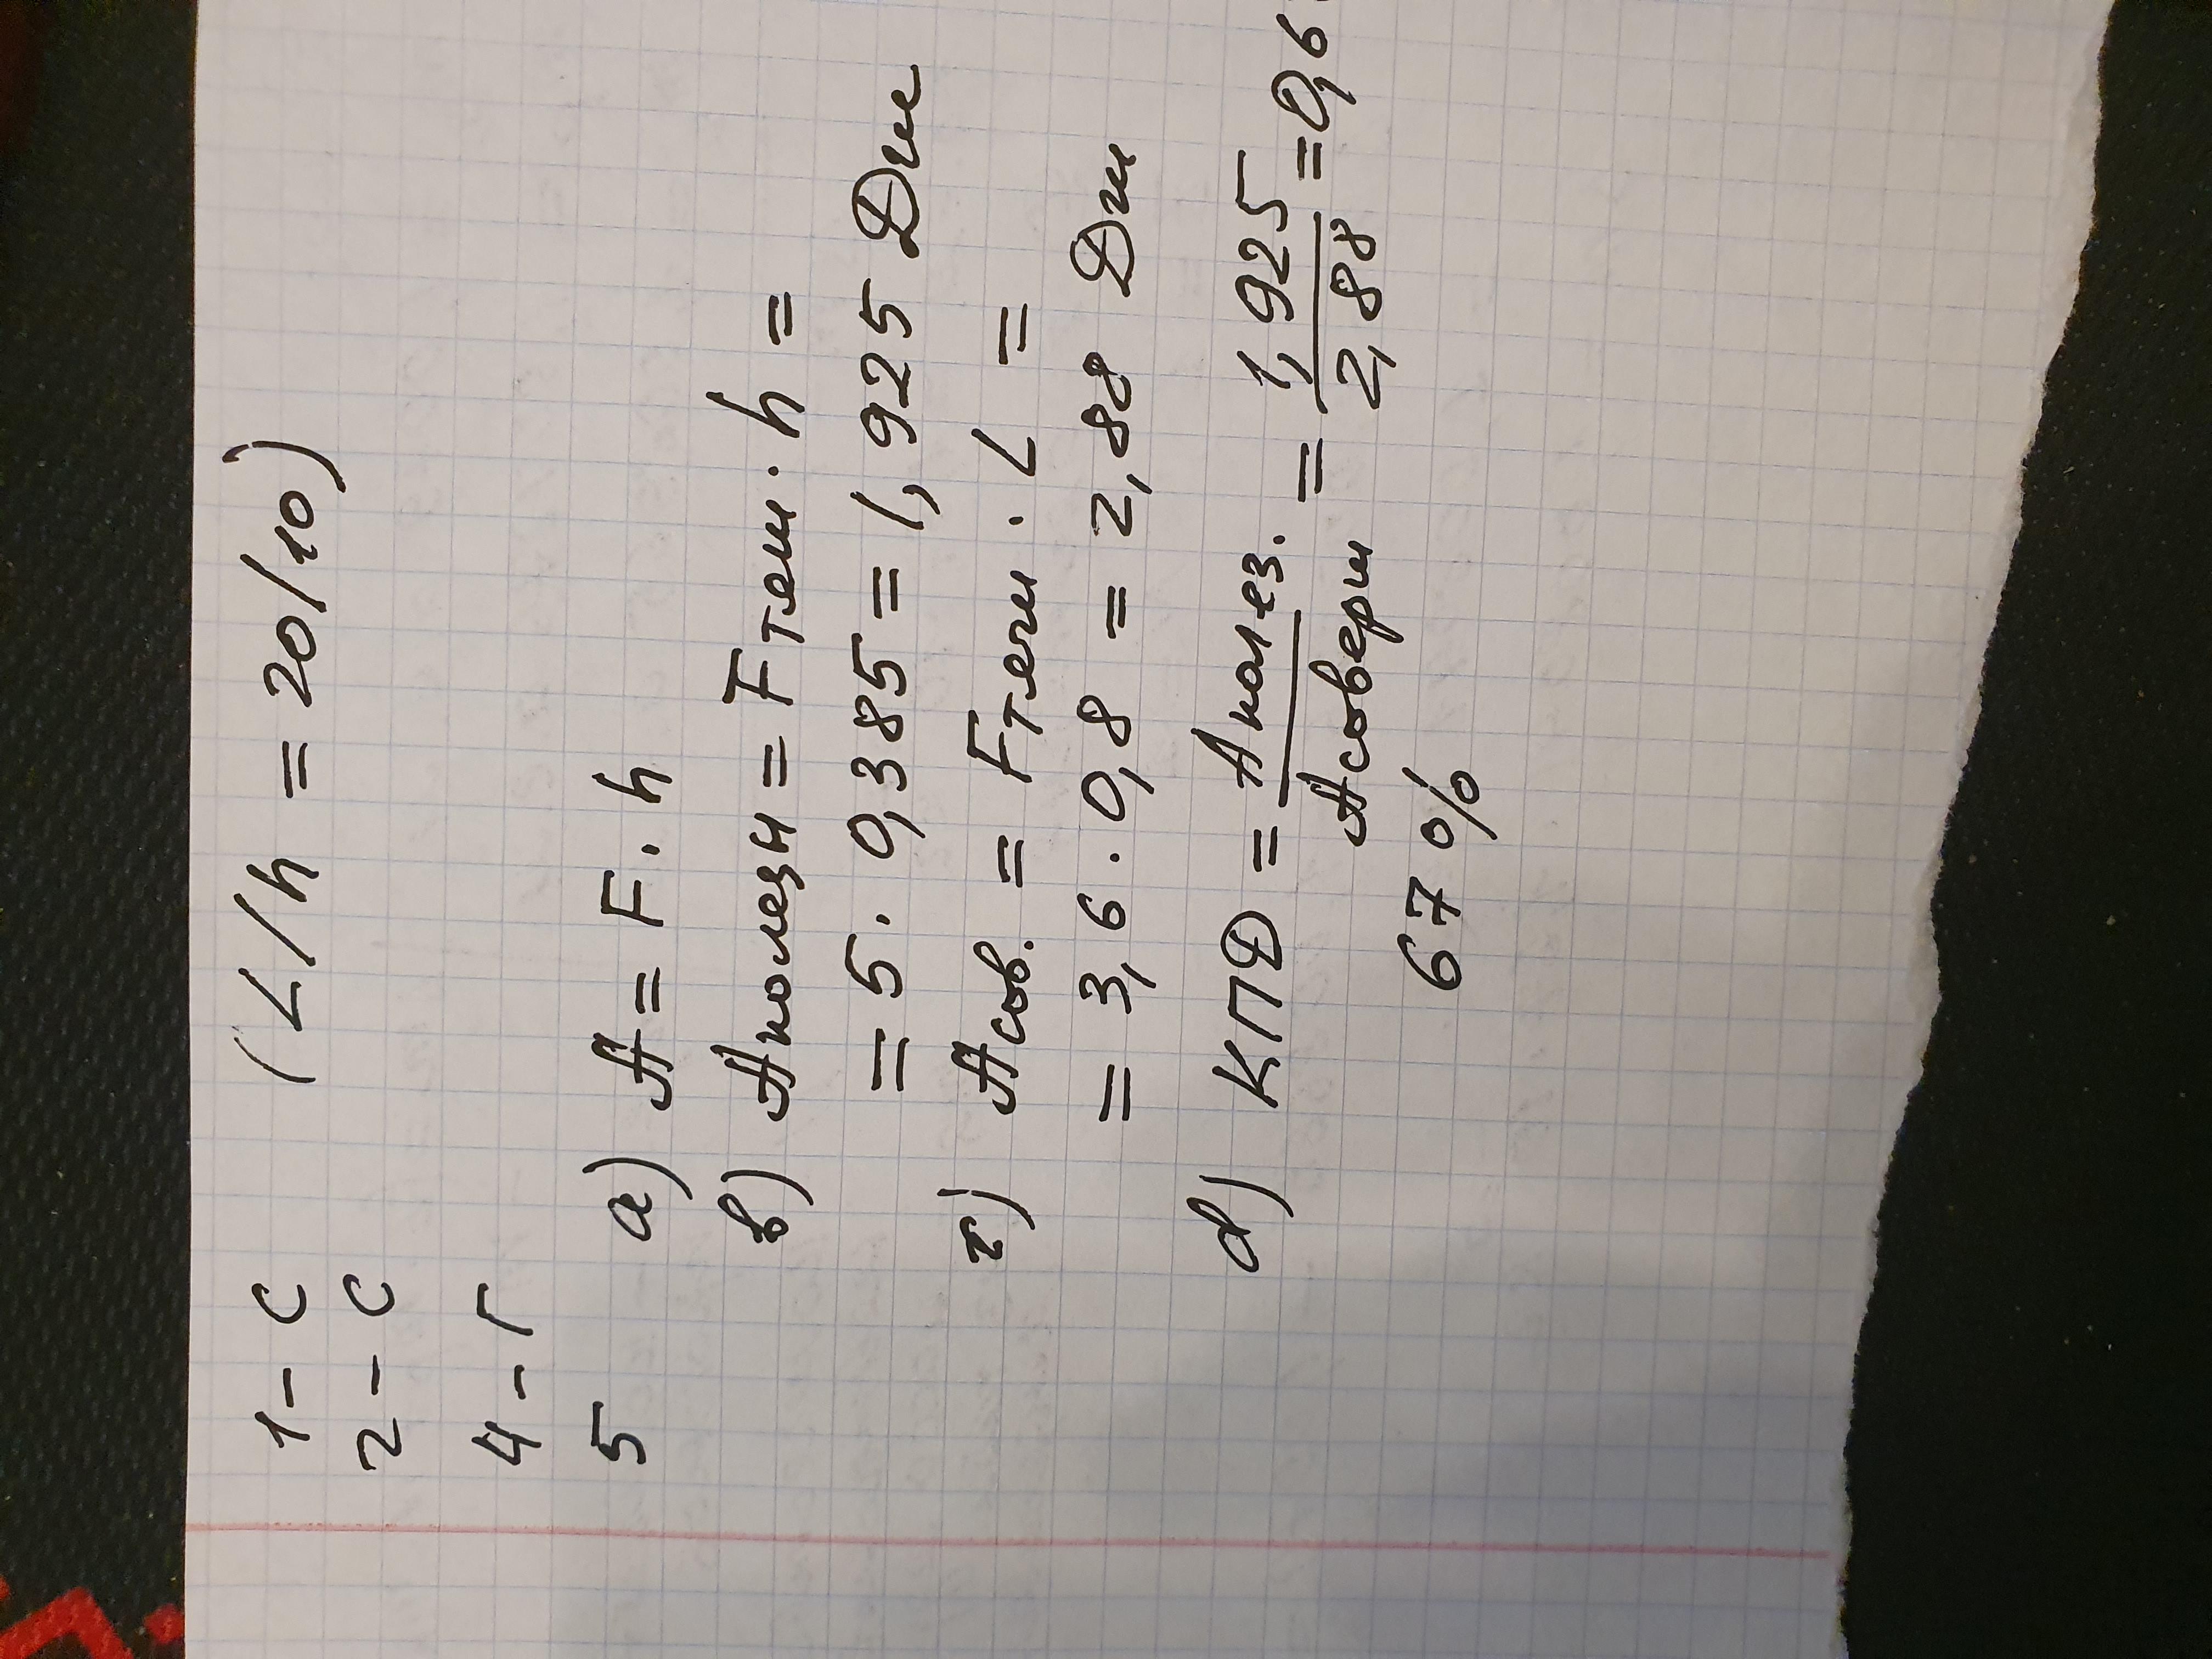 1 - С (L/h = 20/10)
2 - С
4 - Г
5 а) A = F · h
в) Aполезн = Fтяж · h =
= 5 · 0,385 = 1,925 Дж
г) Aсов. = Fтяги · L =
= 3,6 · 0,8 = 2,88 Дж
д) КПД = Aполез. / Aсоверш = 1,925 / 2,88 = 0,6
67 %